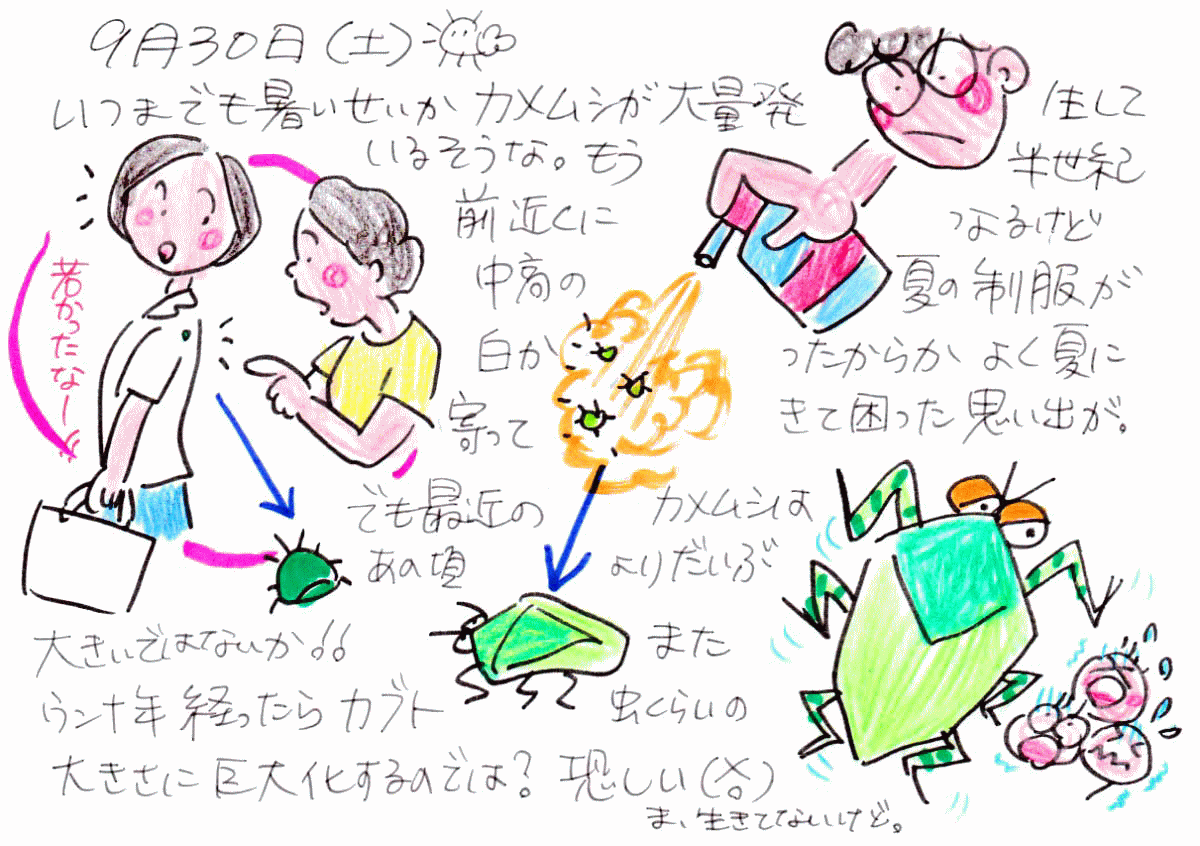 9月30日(土)
いつまでも暑いせいか カメムシが大量発生して
いるそうな。もう半世紀
前近くになるけど
中高の夏の制服が
白かったからか よく夏に
寄ってきて困った思い出が。
若かったなー
でも最近のカメムシは
あの頃よりだいぶ
大きいではないか!!また
ウン十年経ったらカブト虫くらいの
大きさに巨大化するのでは?恐しい(笑)
ま、生きてないけど。